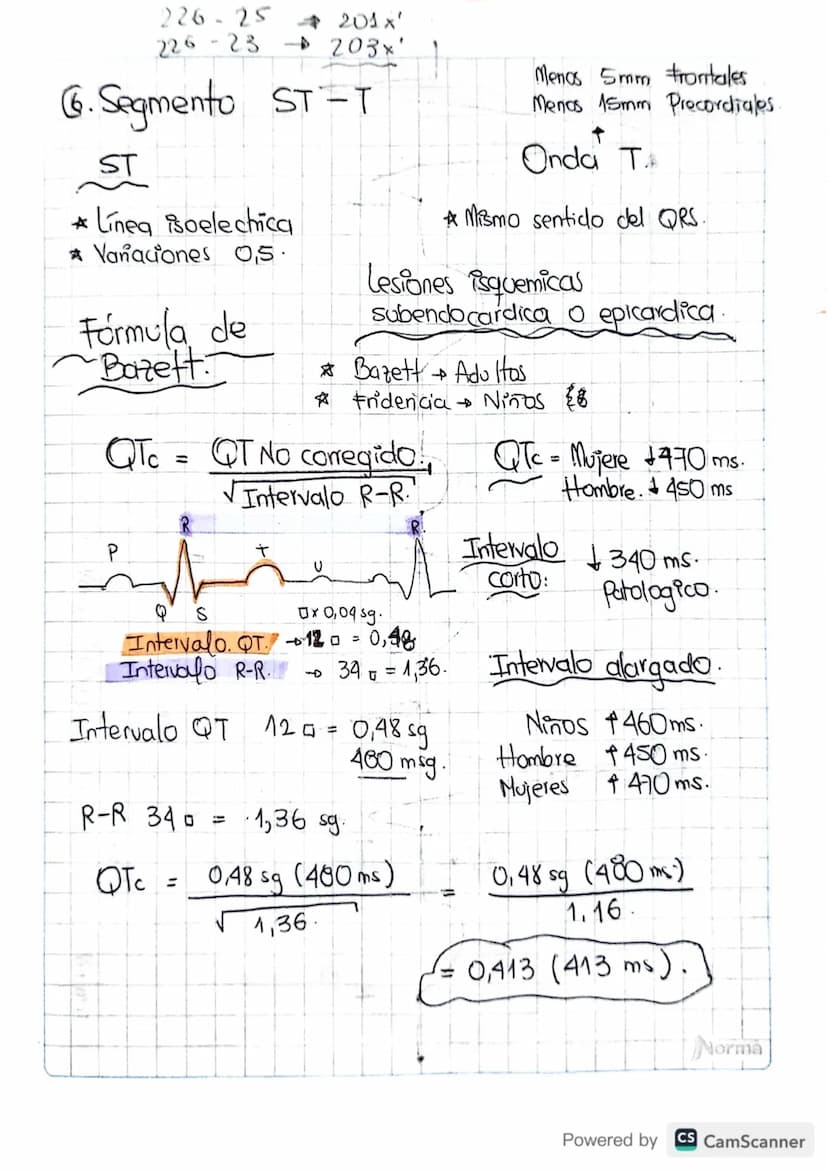 226 - 25 → 201x'
226 - 23 → 203x'
Menos 5mm frontales
Menos 15mm Precordiales
6. Segmento ST-T
↑
Onda T.
ST
* Línea isoelectrica
* Variaciones 0,5.
* Mismo sentido del QRS.
Lesiones isquemicas
subendocardica o epicardica.
Fórmula de
Bazett.
* Bazett → Adultos
* Fridericia → Niños
QTc = QT No corregido
√Intervalo R-R.
QTc = Mujere ↓470 ms.
Hombre. ↓ 450 ms
R R
P T U
Q S
Intervalo
corto: ↓ 340 ms.
Patologico.
□ x 0,04 sg.
Intervalo. QT. → 12 □ = 0,48
Intervalo R-R. → 34 □ = 1,36.
Intervalo alargado.
Niños ↑ 460 ms.
Hombre ↑ 450 ms.
Mujeres ↑ 470 ms.
Intervalo QT 12 □ = 0,48 sg
480 msg.
R-R 34 □ = 1,36 sg.
QTc = 0,48 sg (480 ms) = 0,48 sg (480 ms)
√1,36. 1,16.
= 0,413 (413 ms).
Norma
Powered by CS CamScanner